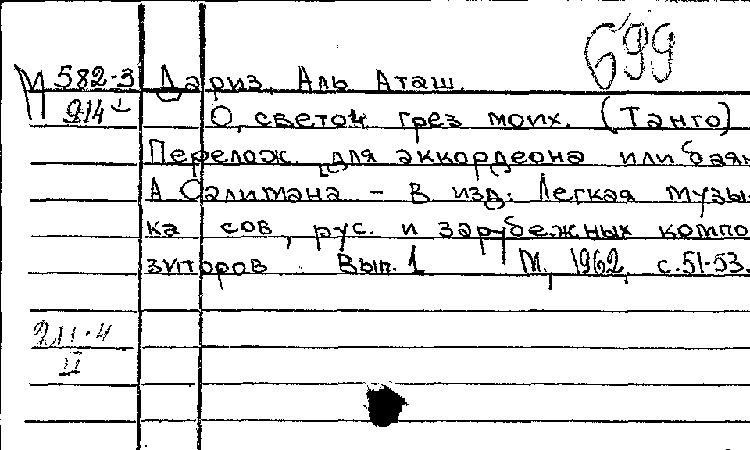 699
М 582-3 Дариз, Аль Аташ.
214
О, светоч грез моих. (Танго)
Перелож. для аккордеона или баян
А Салимана – В изд: Легкая музы-
ка сов, рус. и зарубежных компо
зиторов. Вып. 1 М, 1962, с. 51-53.
211-4
II